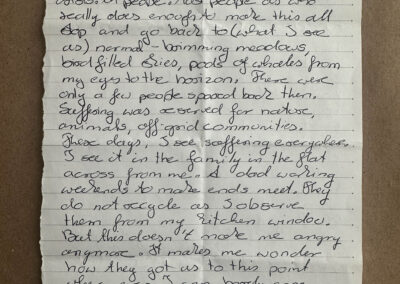 people. Most people as who
really does enough to make this all
stop and go back to (what I see
as) normal - brimming meadows,
bird filled skies, pods of whales from
my eyes to the horizon. There were
only a few people spaced back then.
Suffering was reserved for nature,
animals, off-grid communities.
These days, I see suffering everywhere.
I see it in the family in the flat
across from me. A dad working
weekends to make ends meet. They
do not recycle as I observe
them from my kitchen window.
But this doesn't make me angry
anymore. It makes me wonder
how they got us to this point
where even I can barely